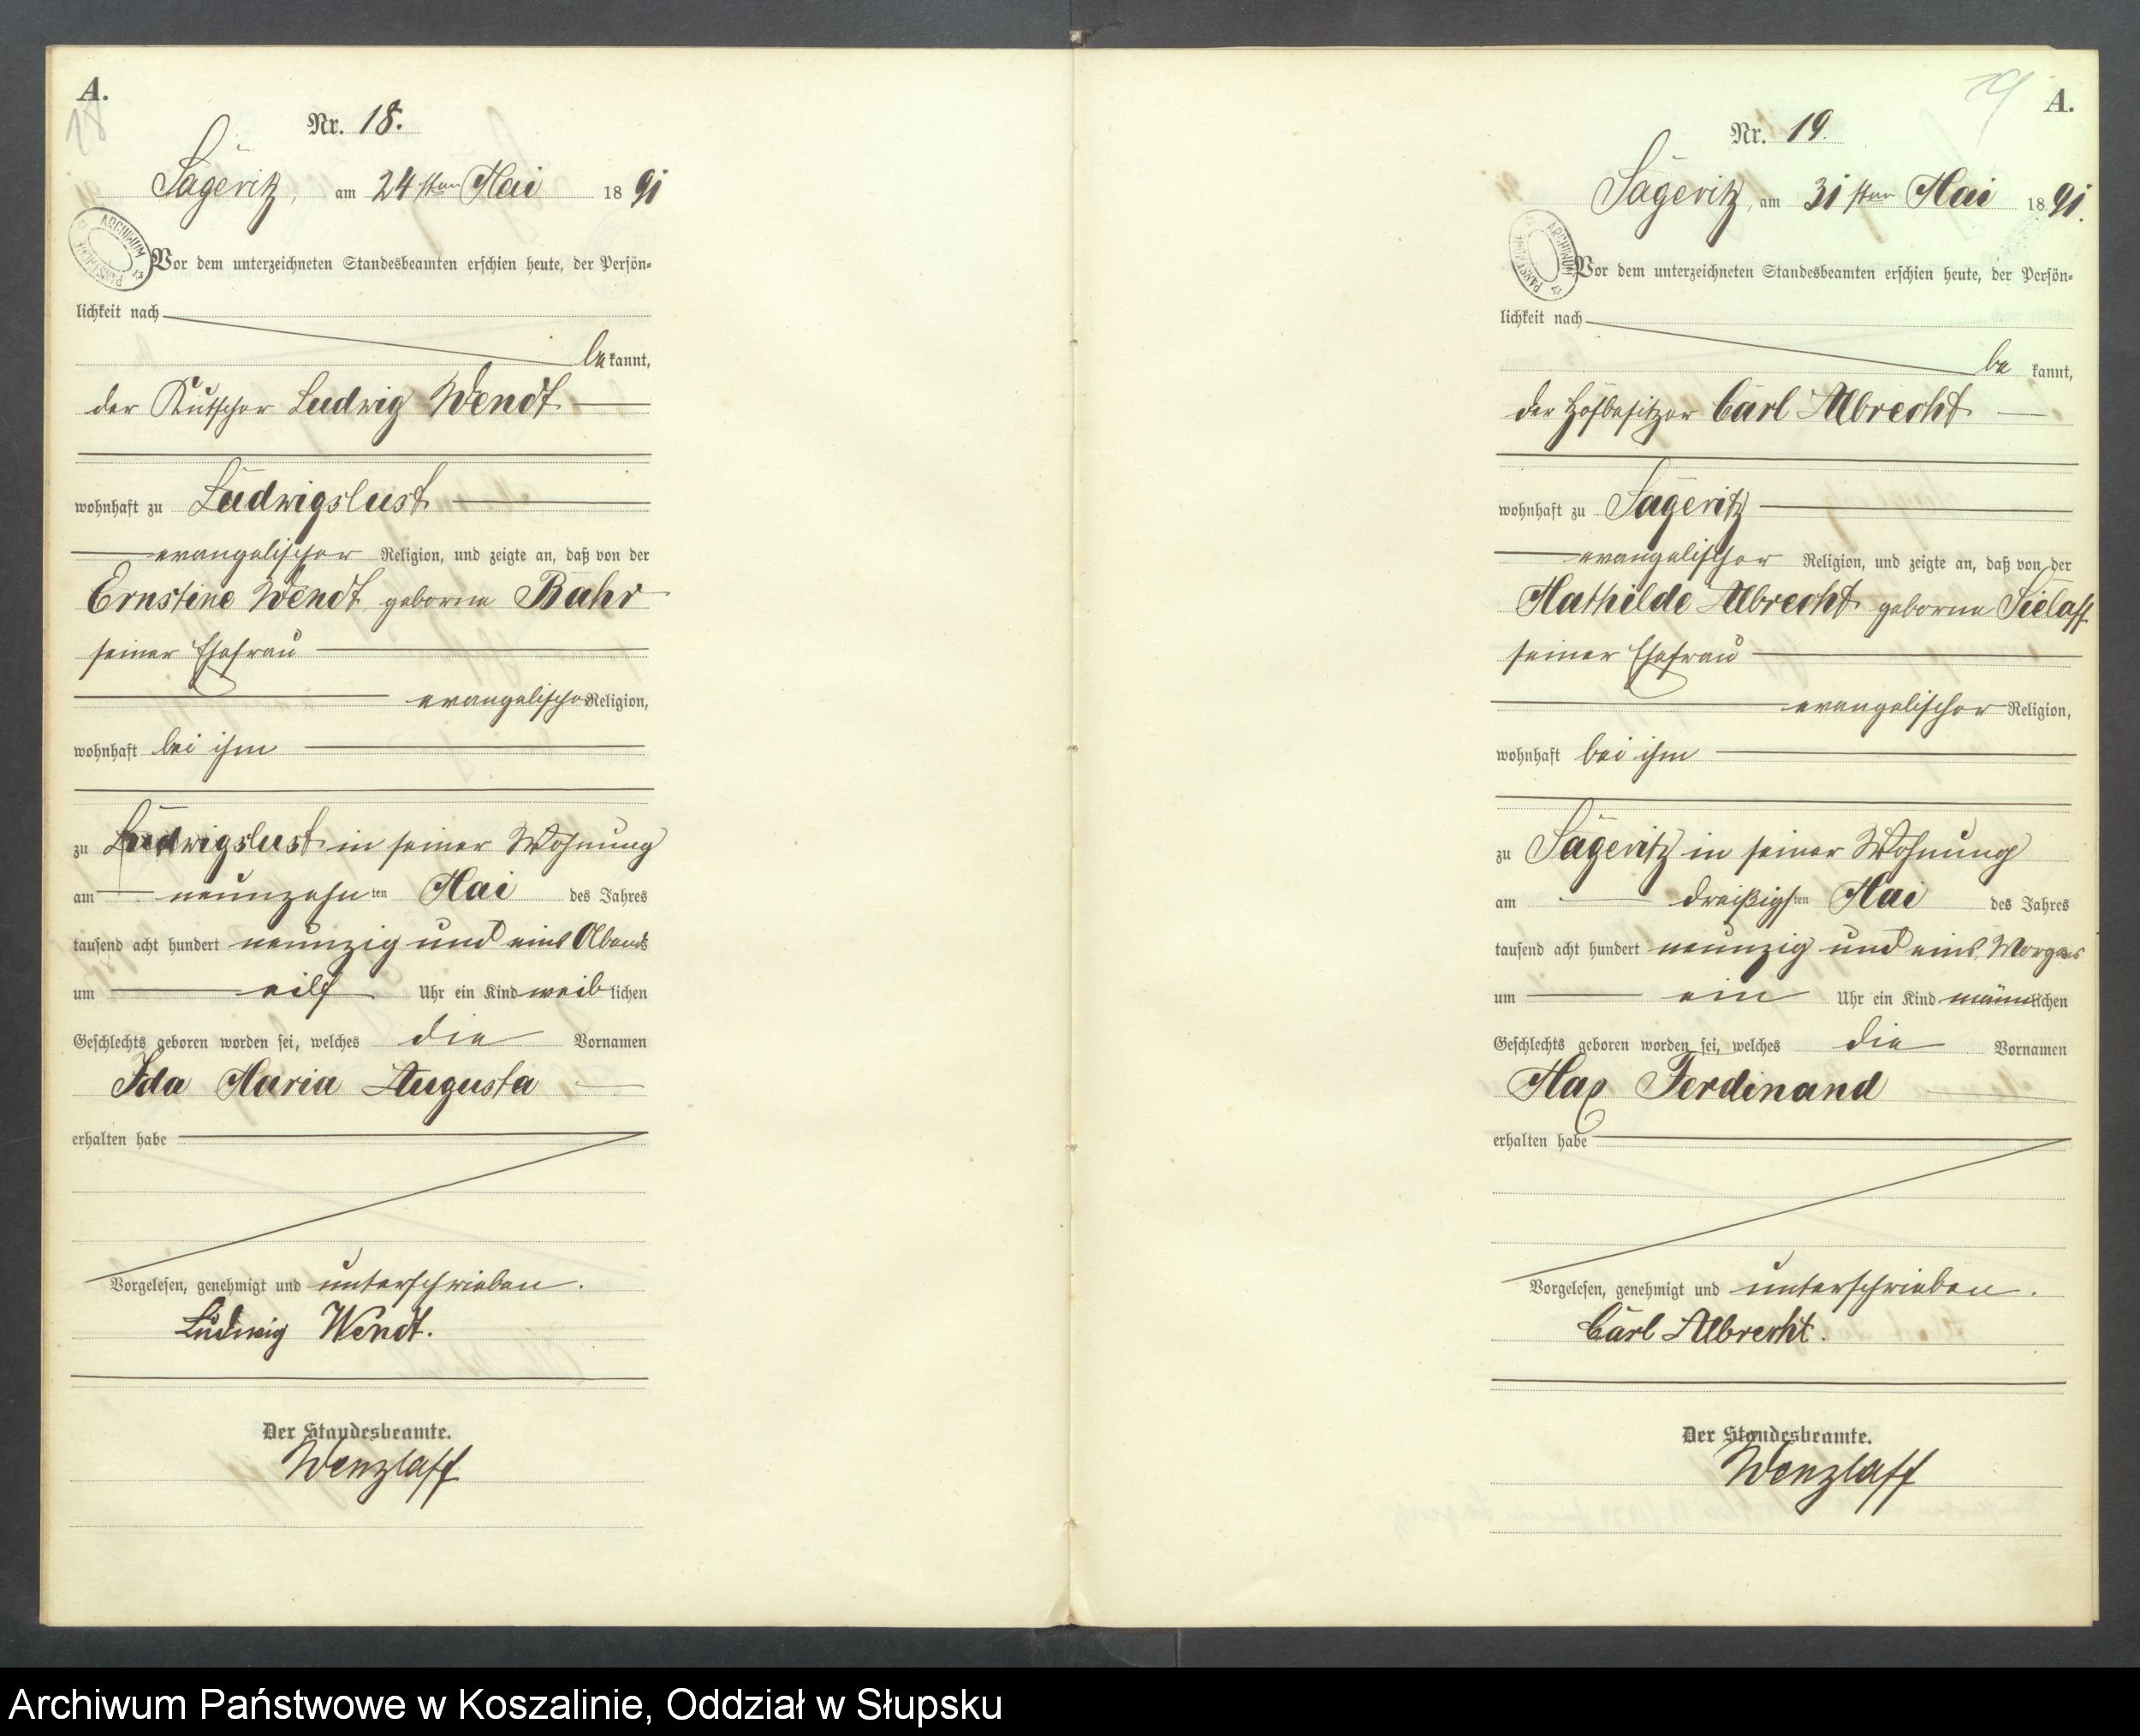 A.
18
Nr. 18.
Sageritz, am 24sten Mai 1891
ARCHIWUM PAŃSTWOWE
Vor dem unterzeichneten Standesbeamten erschien heute, der Persön-
lichkeit nach
bekannt,
der Kutscher Ludwig Wendt
wohnhaft zu Ludwigslust
evangelischer Religion, und zeigte an, daß von der
Ernstine Wendt geborne Bahr
seiner Ehefrau
evangelischer Religion,
wohnhaft bei ihm
zu Ludwigslust in seiner Wohnung
am neunzehnten Mai des Jahres
tausend acht hundert neunzig und eins Abends
um eilf Uhr ein Kind weiblichen
Geschlechts geboren worden sei, welches die Vornamen
Ida Maria Augusta
erhalten habe
Vorgelesen, genehmigt und unterschrieben.
Ludwig Wendt.
Der Standesbeamte.
Wenzlaff
A.
19
Nr. 19.
Sageritz, am 31sten Mai 1891.
ARCHIWUM PAŃSTWOWE
Vor dem unterzeichneten Standesbeamten erschien heute, der Persön-
lichkeit nach
bekannt,
der Hofbesitzer Carl Albrecht
wohnhaft zu Sageritz
evangelischer Religion, und zeigte an, daß von der
Mathilde Albrecht geborne Sielaff
seiner Ehefrau
evangelischer Religion,
wohnhaft bei ihm
zu Sageritz in seiner Wohnung
am dreißigsten Mai des Jahres
tausend acht hundert neunzig und eins, Morgens
um ein Uhr ein Kind männlichen
Geschlechts geboren worden sei, welches die Vornamen
Max Ferdinand
erhalten habe
Vorgelesen, genehmigt und unterschrieben.
Carl Albrecht.
Der Standesbeamte.
Wenzlaff
Archiwum Państwowe w Koszalinie, Oddział w Słupsku